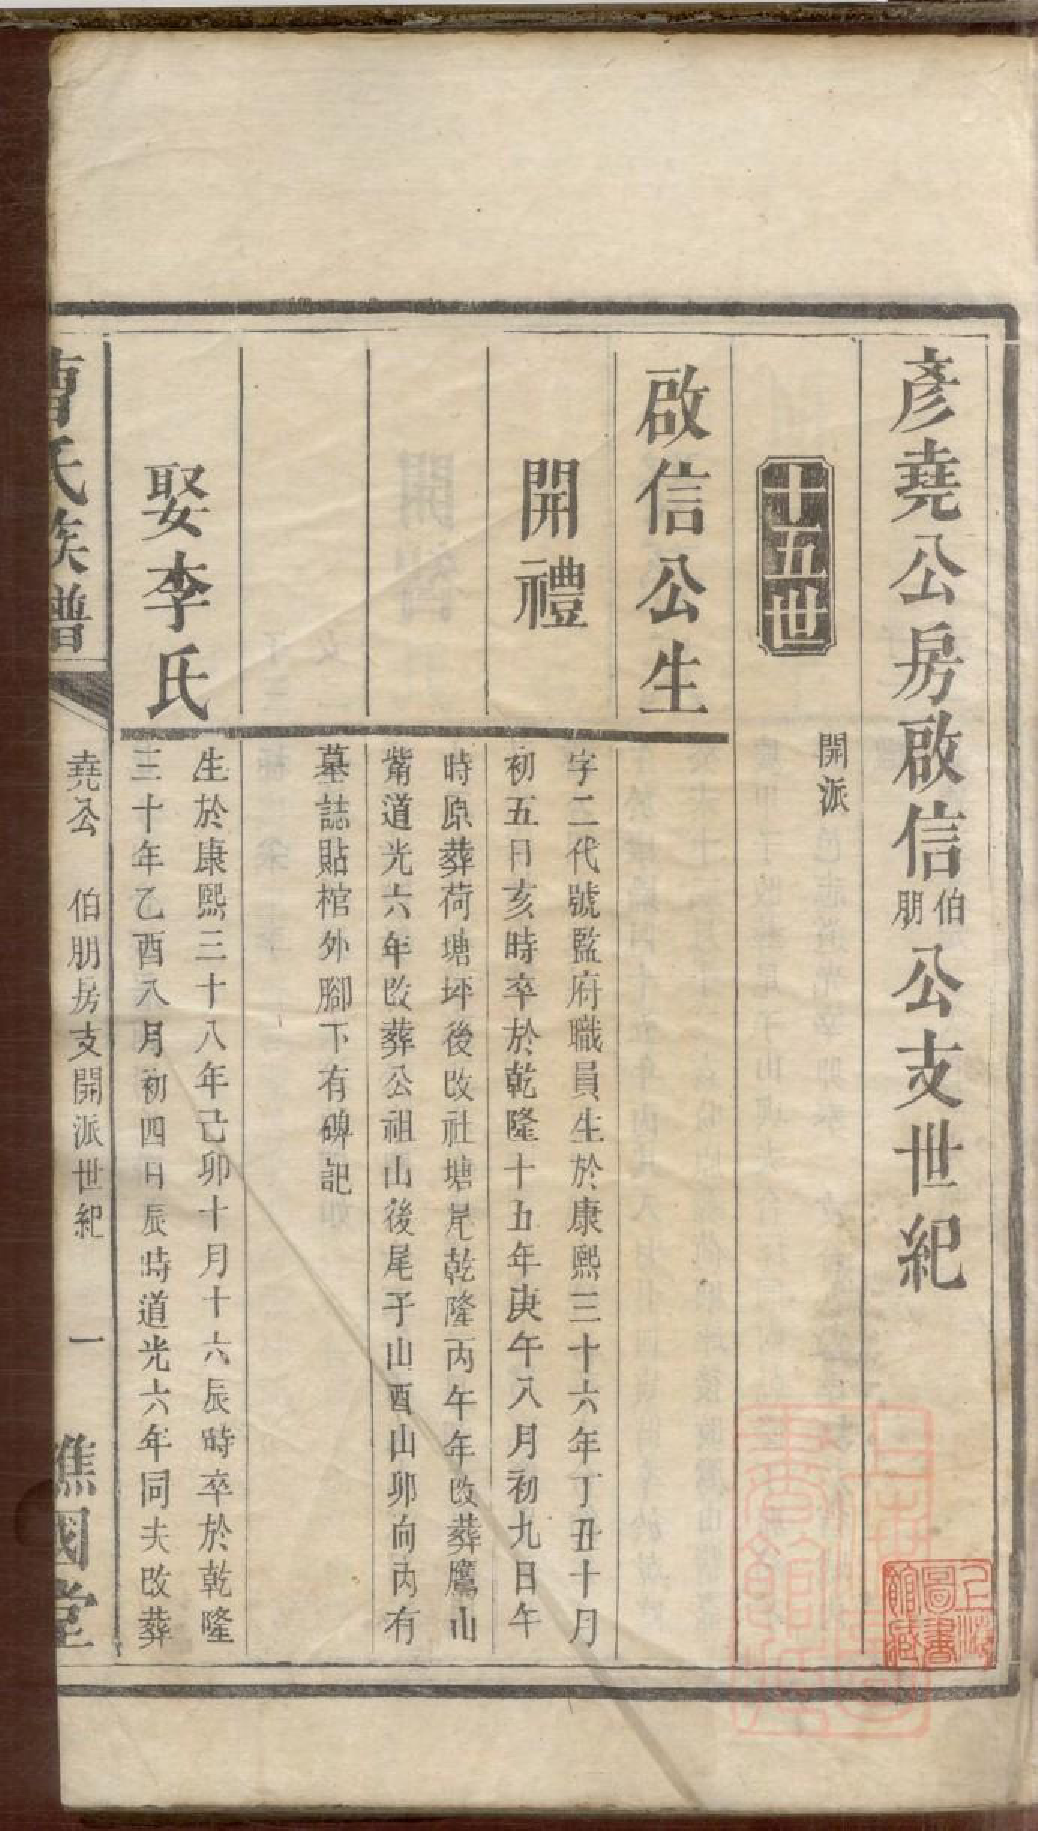 彥堯公房啟信伯朋公支世紀
十五世
開派
啟信公生
開禮
字二代號監府職員生於康熙三十六年丁丑十月
初五日亥時卒於乾隆十五年庚午八月初九日午
時原葬荷塘坪後改社塘尾乾隆丙午年改葬鷹山
嘴道光六年改葬公祖山後尾子山酉山卯向內有
墓誌貼棺外腳下有碑記
娶李氏
生於康熙三十八年己卯十月十六辰時卒於乾隆
三十年乙酉八月初四日辰時道光六年同夫改葬
曹氏族譜
堯公 伯朋房支開派世紀 一
譙國堂
上海圖書館藏